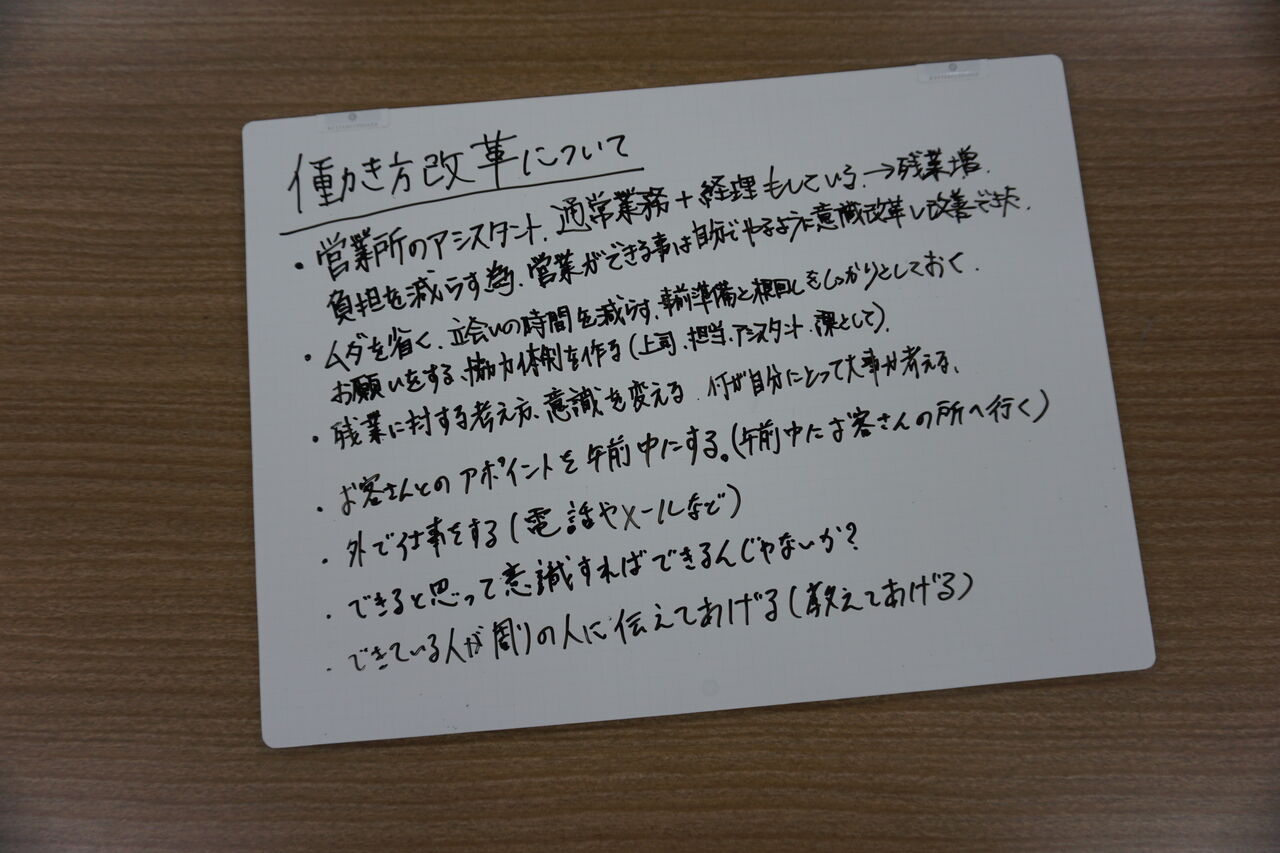 働き方改革について
・営業所のアシスタント、通常業務+経理もしている。→残業増。
負担を減らす為、営業ができる事は自分でやるように意識改革し改善できた。
・ムダを省く、立会いの時間を減らす、事前準備と根回しをしっかりとしておく。
お願いをする、協力体制を作る(上司、担当、アシスタント、課として)。
・残業に対する考え方、意識を変える。何が自分にとって大事か考える、
・お客さんとのアポイントを午前中にする。(午前中にお客さんの所へ行く)
・外で仕事をする(電話やメールなど)
・できると思って意識すればできるんじゃないか?
・できている人が周りの人に伝えてあげる(教えてあげる)